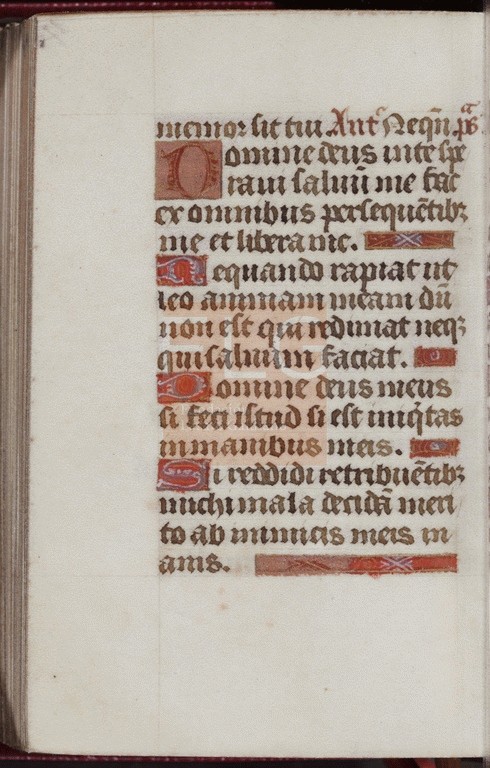 memor sit tui Antᵉ Neqn̄ p̄s
Domine deus in te spe
raui saluū me fac
ex omnibus persequētibꝫ
me et libera me.
Nequando rapiat ut
leo animam meam dū
non est qui redimat neqꝫ
qui saluum faciat.
Domine deus meus
si feci istud si est iniq̄tas
in manibus meis.
Si reddidi retribuētibꝫ
michi mala decidā meri
to ab inimicis meis in
anis.